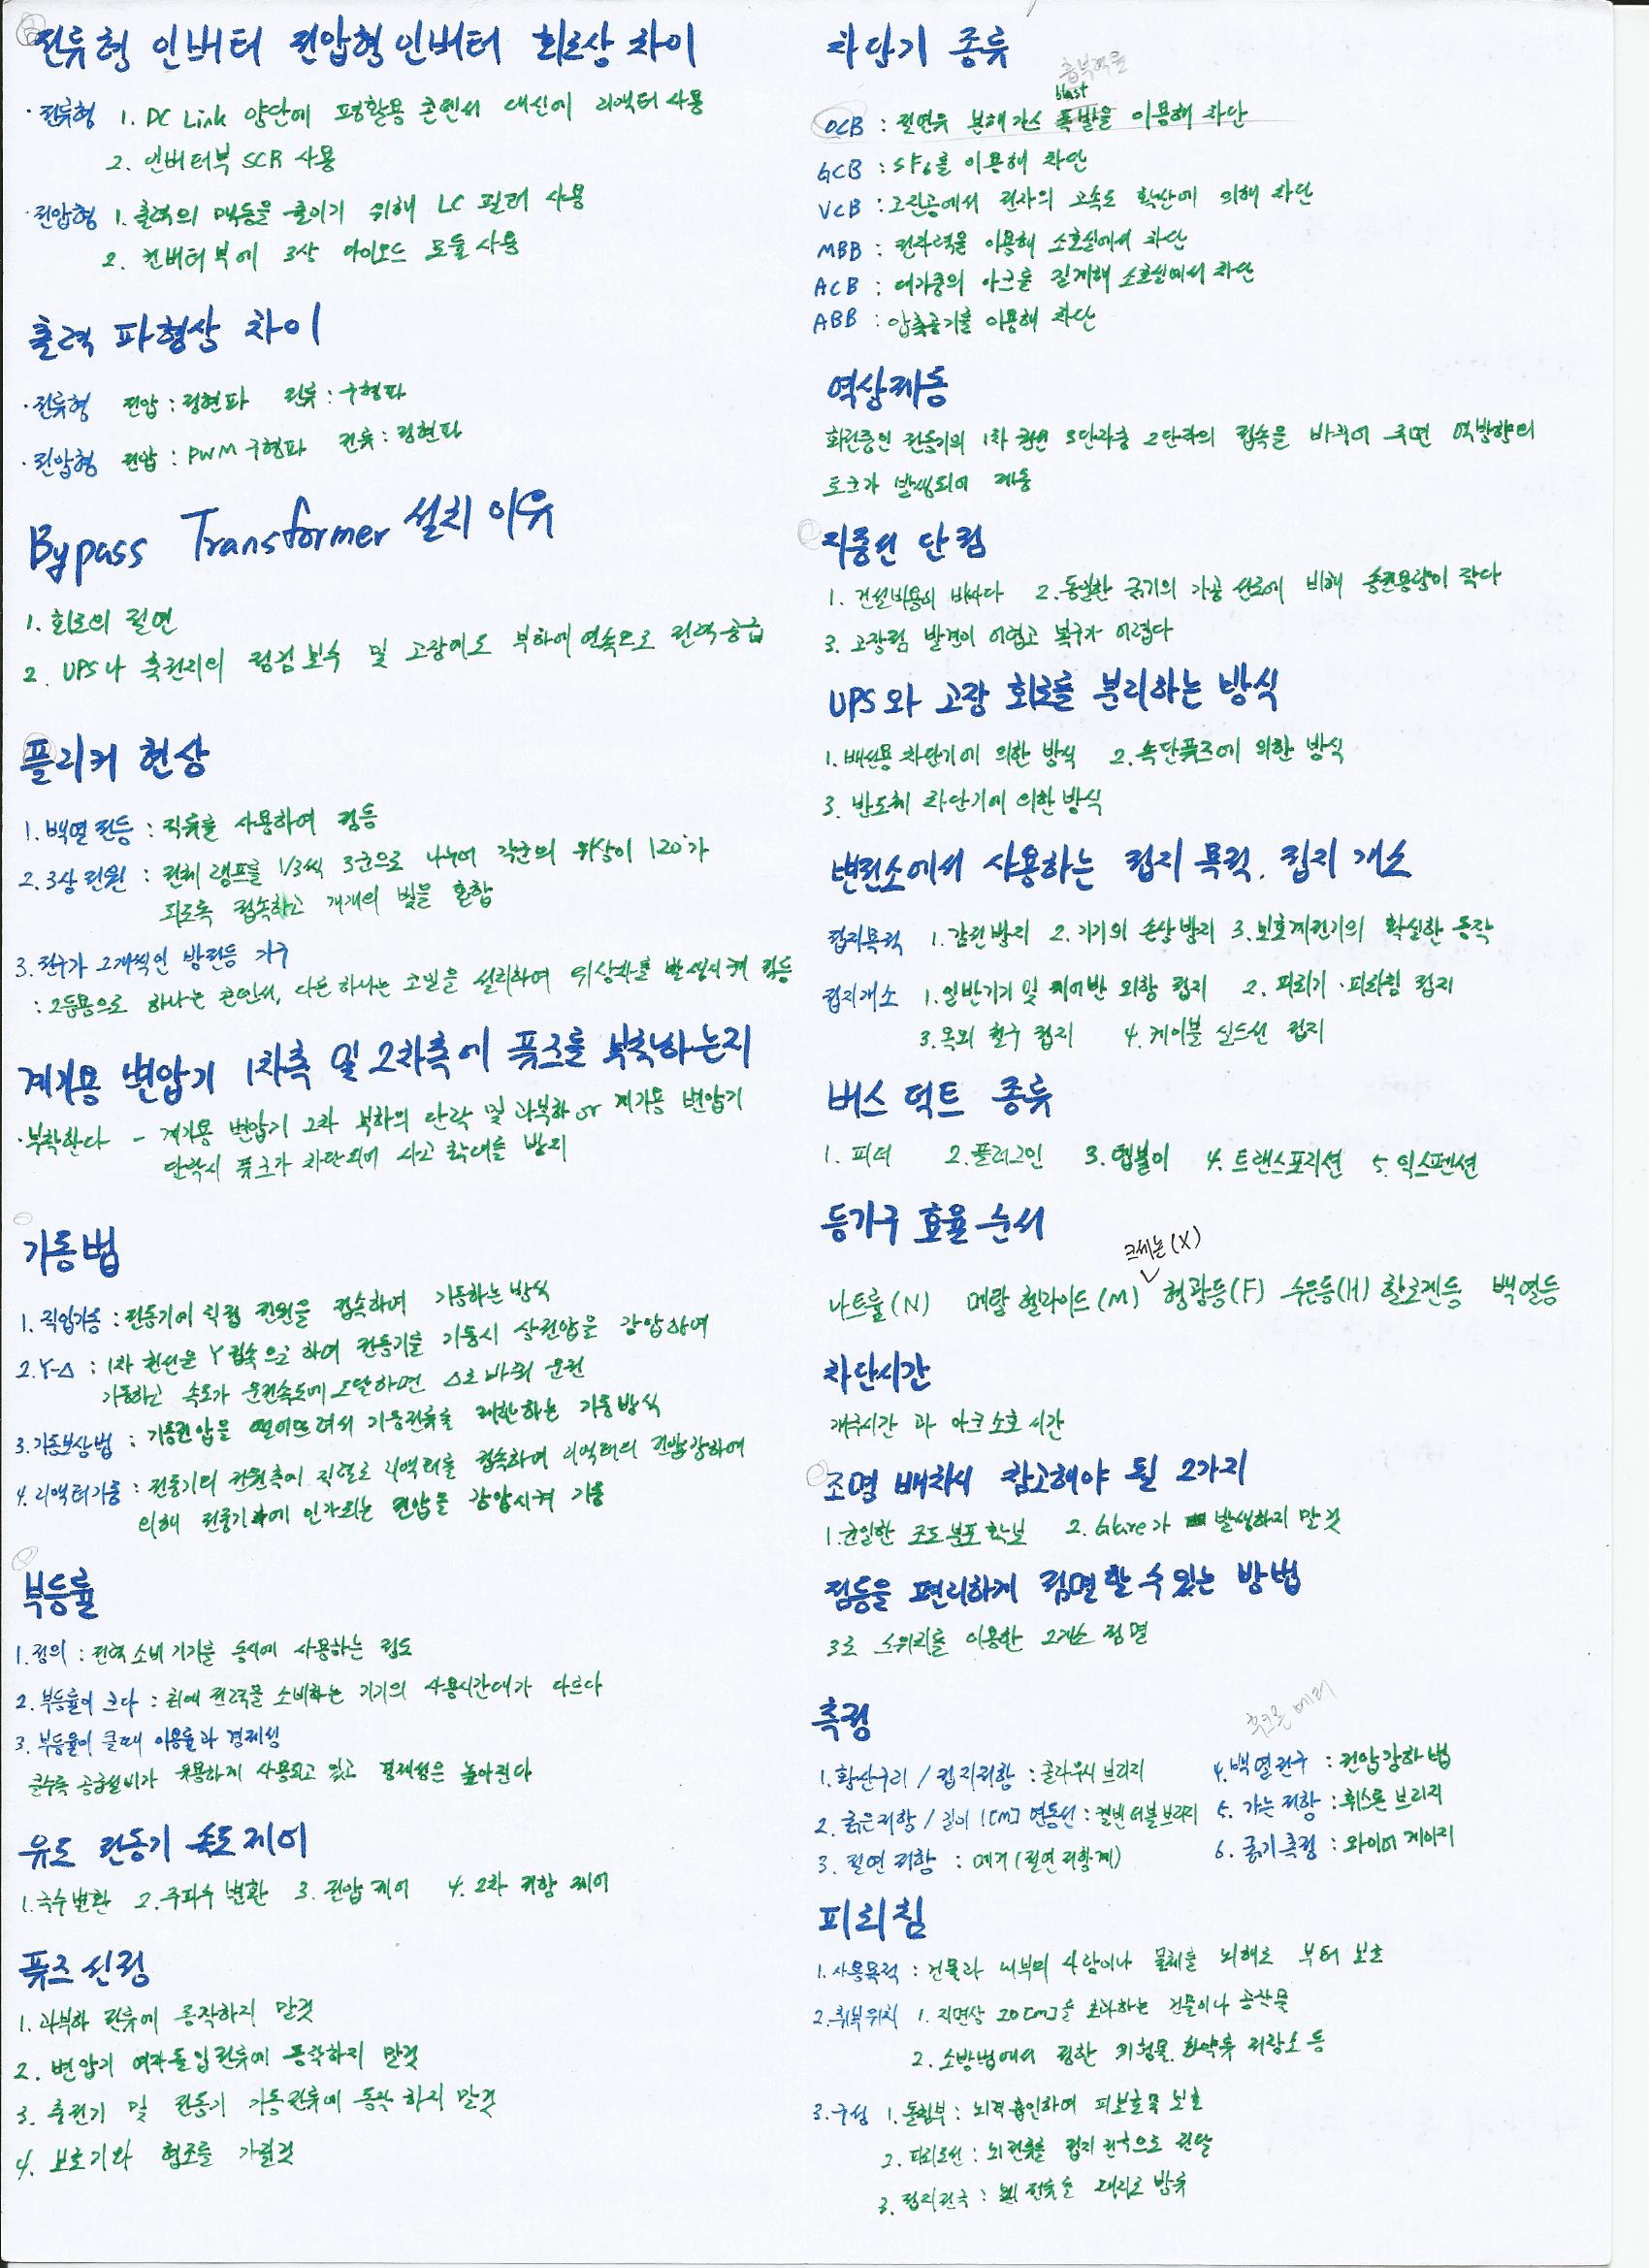 전류형 인버터 전압형 인버터 회로상 차이
· 전류형 1. DC Link 양단에 평활용 콘덴서 대신에 리액터 사용
2. 인버터부 SCR 사용
· 전압형 1. 출력의 맥동을 줄이기 위해 LC 필터 사용
2. 컨버터부에 3상 다이오드 모듈 사용
출력 파형상 차이
· 전류형 전압 : 정현파 전류 : 구형파
· 전압형 전압 : PWM 구형파 전류 : 정현파
Bypass Transformer 설치 이유
1. 회로의 절연
2. UPS나 축전지의 점검 보수 및 고장에도 부하에 연속으로 전력공급
플리커 현상
1. 백열전등 : 직류를 사용하여 점등
2. 3상 전원 : 전체 램프를 1/3씩 3군으로 나누어 각군의 위상이 120°가
되도록 접속하고 개개의 빛을 혼합
3. 전구가 2개씩인 방전등 기구
: 2등용으로 하나는 콘덴서, 다른 하나는 코일을 설치하여 위상차를 발생시켜 점등
계기용 변압기 1차측 및 2차측에 퓨즈를 부착하는지
· 부착한다 - 계기용 변압기 2차 부하의 단락 및 과부하 or 계기용 변압기
단락시 퓨즈가 차단되어 사고 확대를 방지
기동법
1. 직입기동 : 전동기에 직접 전원을 접속하여 기동하는 방식
2. Y-Δ : 1차 권선을 Y접속으로 하여 전동기를 기동시 상전압을 감압하여
기동하고 속도가 운전속도에 도달하면 Δ로 바꿔 운전
3. 기동보상법 : 기동전압을 떨어뜨려서 기동전류를 제한하는 기동방식
4. 리액터기동 : 전동기의 전원측에 직렬로 리액터를 접속하여 리액터의 전압강하에
의해 전동기에 인가되는 전압을 감압시켜 기동
부등률
1. 정의 : 전력소비 기기를 동시에 사용하는 정도
2. 부등률이 크다 : 최대 전력을 소비하는 기기의 사용시간대가 다르다
3. 부등률이 클때 이용률과 경제성
클수록 공급설비가 유용하게 사용되고 있고 경제성은 높아진다
유도 전동기 속도 제어
1. 극수변환 2. 주파수 변환 3. 전압 제어 4. 2차 저항 제어
퓨즈 선정
1. 과부하 전류에 동작하지 말것
2. 변압기 여자돌입전류에 동작하지 말것
3. 충전기 및 전동기 기동전류에 동작 하지 말것
4. 보호기와 협조를 가질것
차단기 종류
흡부력르
blast
OCB : 절연유 분해가스 폭발을 이용해 차단
GCB : SF6를 이용해 차단
VCB : 고진공에서 전자의 고속도 확산에 의해 차단
MBB : 전자력을 이용해 소호실에서 차단
ACB : 대기중의 아크를 길게해 소호실에서 차단
ABB : 압축공기를 이용해 차단
역상제동
회전중인 전동기의 1차 권선 3단자중 2단자의 접속을 바꾸어 주면 역방향의
토크가 발생되어 제동
지중선 단점
1. 건설비용이 비싸다 2. 동일한 굵기의 가공 선로에 비해 송전용량이 작다
3. 고장점 발견이 어렵고 복구가 어렵다
UPS와 고장 회로를 분리하는 방식
1. 배선용 차단기에 의한 방식 2. 속단퓨즈에 의한 방식
3. 반도체 차단기에 의한 방식
변전소에서 사용하는 접지 목적. 접지 개소
접지목적 1. 감전방지 2. 기기의 손상방지 3. 보호계전기의 확실한 동작
접지개소 1. 일반기기 및 제어반 외함 접지 2. 피뢰기 · 피뢰침 접지
3. 옥외 철구 접지 4. 케이블 실드선 접지
버스 덕트 종류
1. 피더 2. 플러그인 3. 탭붙이 4. 트랜스포지션 5. 익스펜션
등기구 효율 순서
크세논 (X)
나트륨 (N) 메탈 헬라이드 (M) 형광등 (F) 수은등 (H) 할로겐등 백열등
차단시간
개극시간 과 아크소호 시간
조명 배치시 참고해야 될 2가지
1. 균일한 조도분포 확보 2. Glare가 발생하지 말것
점등을 편리하게 점멸할 수 있는 방법
3로 스위치를 이용한 2개소 점멸
측정
1. 황산구리 / 접지저항 : 콜라우시 브리지
2. 굵은저항 / 길이 1[m] 연동선 : 켈빈더블브리지
3. 절연 저항 : 메거 (절연저항계)
4. 백열전구 : 전압강하법
5. 가는 저항 : 휘스톤 브리지
6. 굵기측정 : 와이어 게이지
피뢰침
1. 사용목적 : 건물과 내부의 사람이나 물체를 뇌해로 부터 보호
2. 취부위치 1. 지면상 20[m]을 초과하는 건물이나 공작물
2. 소방법에서 정한 위험물, 화약류 저장소 등
3. 구성 1. 돌침부 : 뇌격흡인하여 피보호물 보호
2. 피뢰도선 : 뇌전류를 접지 전극으로 전달
3. 접지전극 : 뇌 전류를 대지로 방류